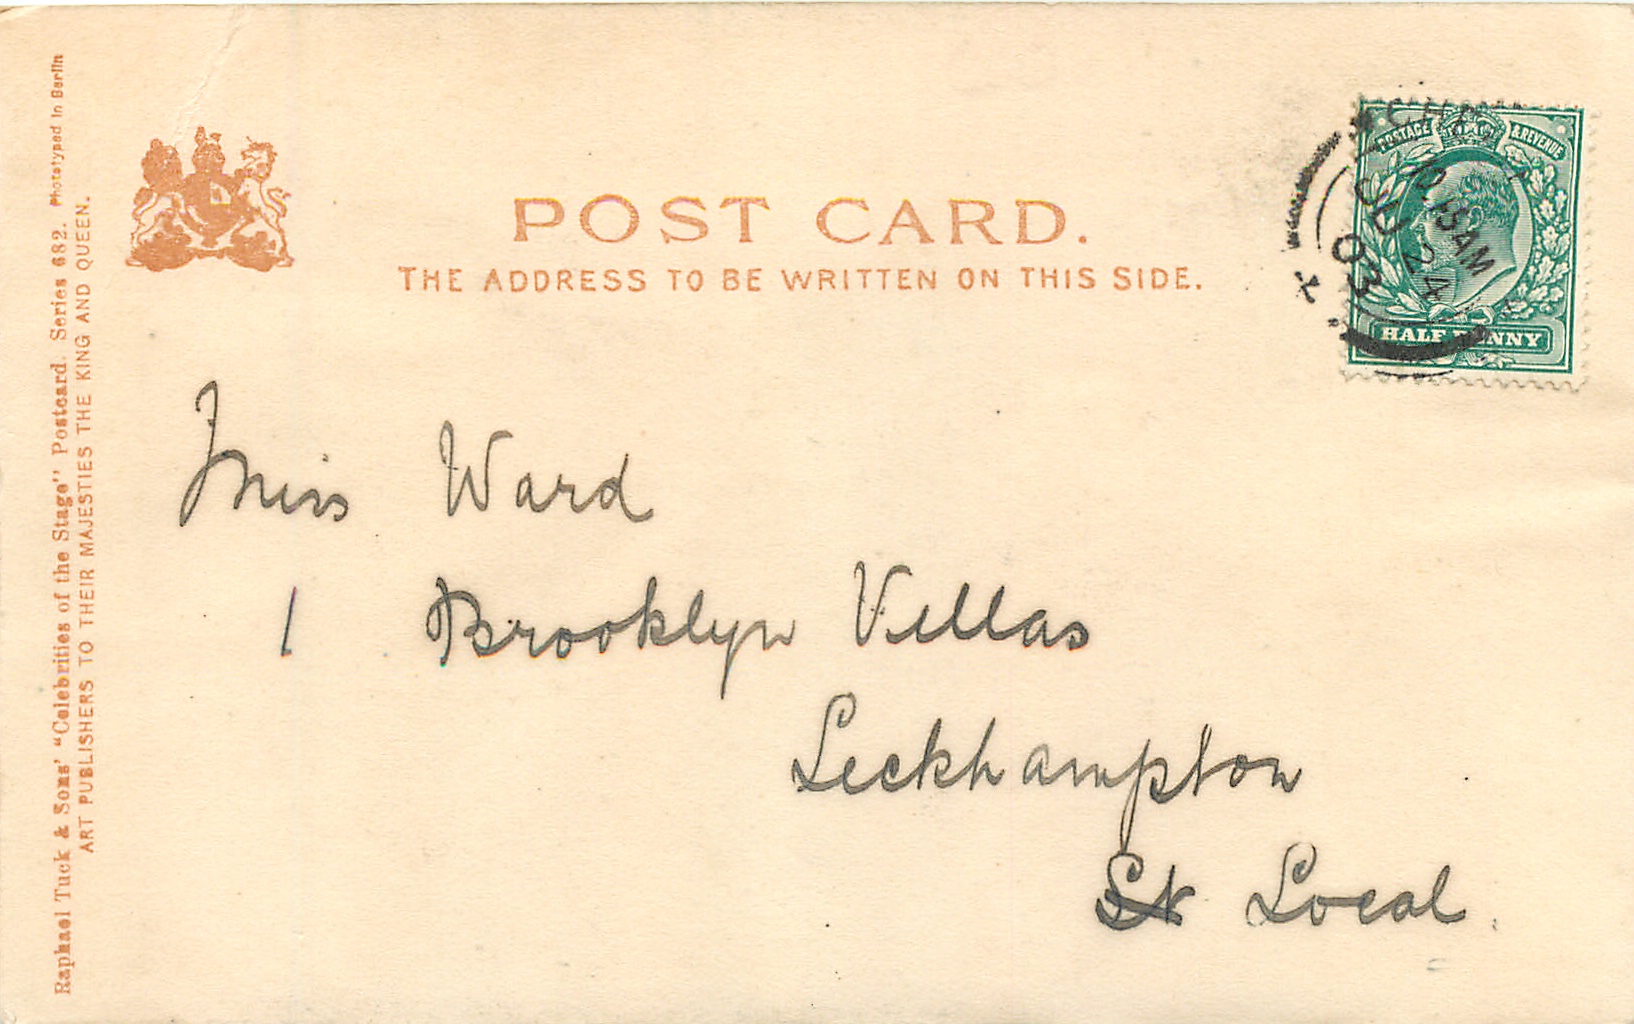 Raphael Tuck & Sons' "Celebrities of the Stage" Postcard. Series 682. Phototyped in Berlin
ART PUBLISHERS TO THEIR MAJESTIES THE KING AND QUEEN.
POST CARD.
THE ADDRESS TO BE WRITTEN ON THIS SIDE.
POSTAGE & REVENUE
HALFPENNY
SAM
24
03
Miss Ward
1 Brooklyn Villas
Leckhampton
Local